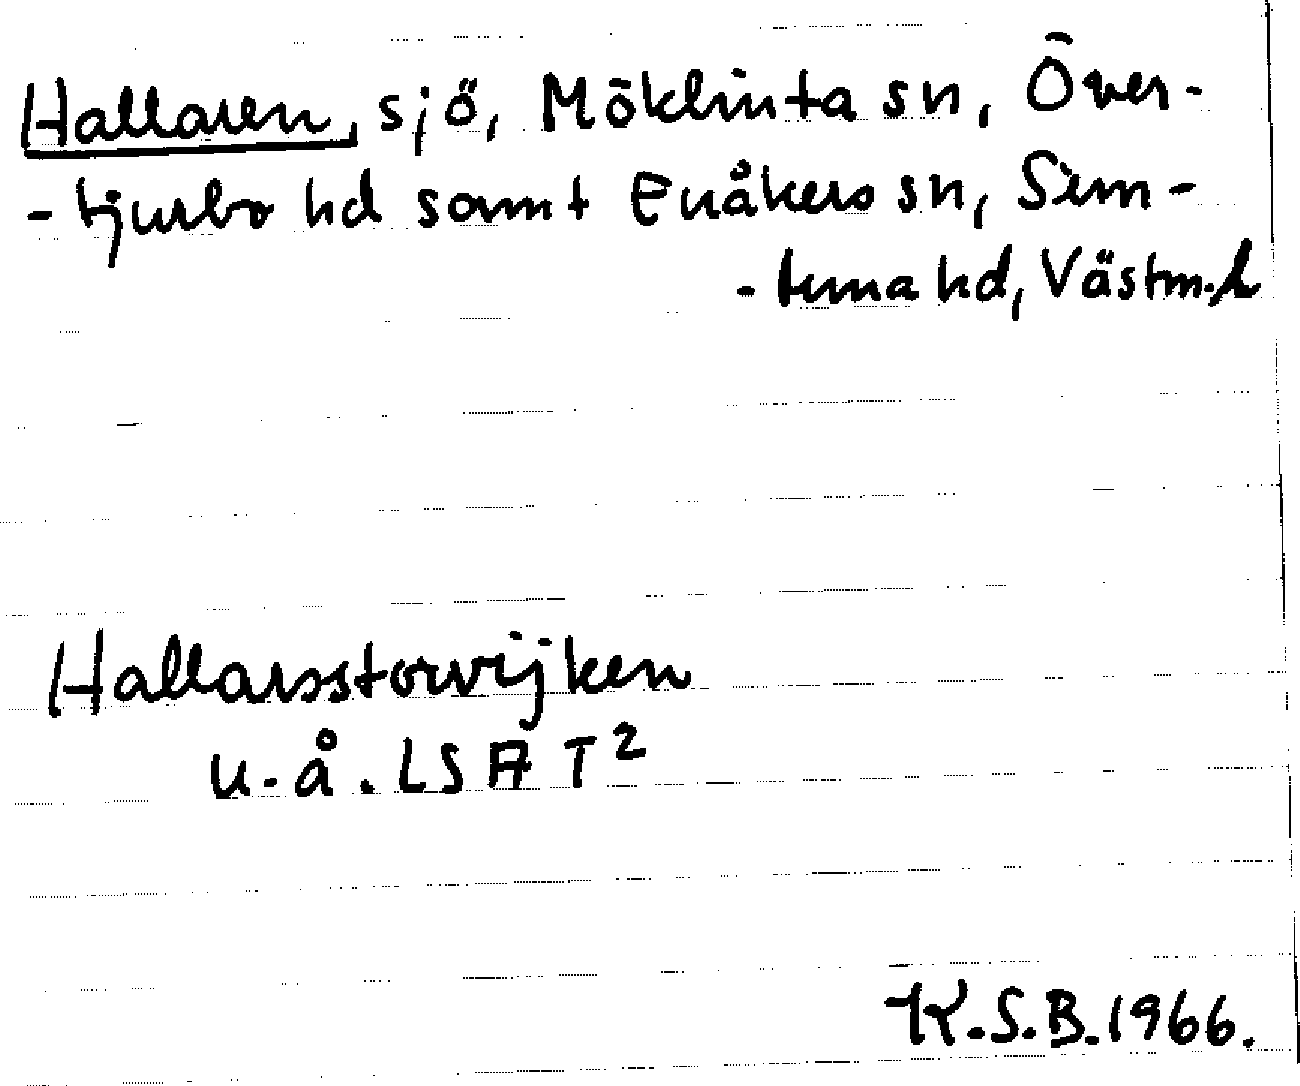 Hallaren, sjö, Möklinta sn, Över-
- tjurbo hd samt Enåkers sn, Sim-
- tuna hd, Västm. l
Hallarsstorvijken
u. å. LSA T²
K.S.B. 1966.